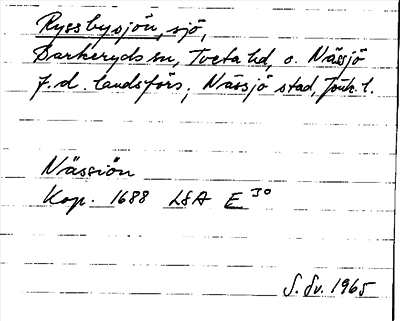 Ryssbysjön, sjö,
Barkeryds sn, Tveta hd, o. Nässjö
f.d. landsförs., Nässjö stad, Jönk. l.
Nässiön
Kop. 1688 LSA E 30
S. Sv. 1965